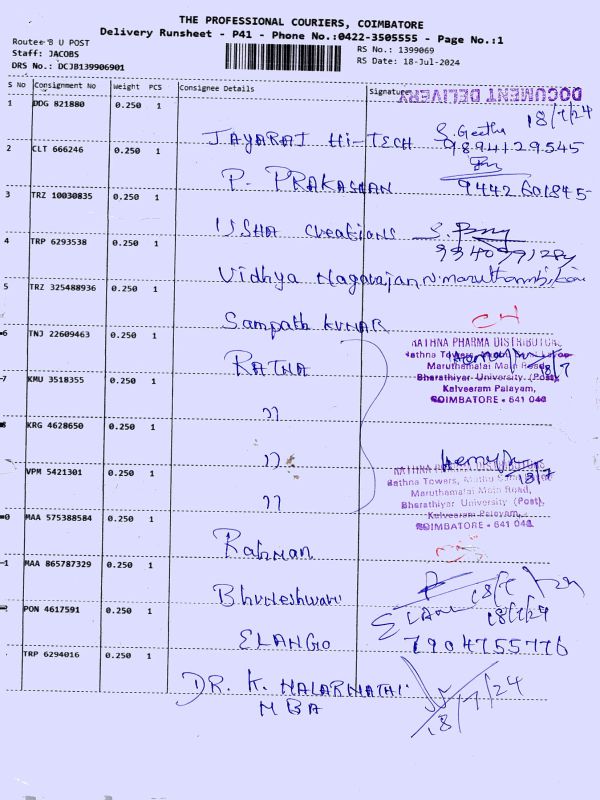 THE PROFESSIONAL COURIERS, COIMBATORE
Delivery Runsheet - P41 - Phone No.:0422-3505555 - Page No.:1
Routee B U POST
Staff: JACOBS
DRS No.: DCJB139906901
RS No.: 1399069
RS Date: 18-Jul-2024
S No Consignment No Weight PCS Consignee Details Signature
DOCUMENT DELIVERY
1 DDG 821880 0.250 1
JAYARAJ Hi-TECH S. Geetha 18/7/24
9894129545
2 CLT 666246 0.250 1
P. PRAKASHAN
9442601845
3 TRZ 10030835 0.250 1
USHA Creations
4 TRP 6293538 0.250 1
Vidhya Nagarajan
5 TRZ 325488936 0.250 1
Sampath KUMAR
6 TNJ 22609463 0.250 1
RATNA
RATHNA PHARMA DISTRIBUTORS
Rathna Towers,
Maruthamalai Main Road,
Bharathiyar University (Post),
Kalveeram Palayam,
COIMBATORE - 641 046
18/7
7 KMU 3518355 0.250 1
"
8 KRG 4628650 0.250 1
"
VPM 5421301 0.250 1
"
18/7
RATHNA PHARMA DISTRIBUTORS
Rathna Towers,
Maruthamalai Main Road,
Bharathiyar University (Post),
Kalveeram Palayam,
COIMBATORE - 641 046
0 MAA 575388584 0.250 1
Rahman
1 MAA 865787329 0.250 1
Bhuneshwari 18/7/24
2 PON 4617591 0.250 1
ELANGO 18/7/24
7904755776
TRP 6294016 0.250 1
DR. K. MALARMATHI
MBA
18/7/24